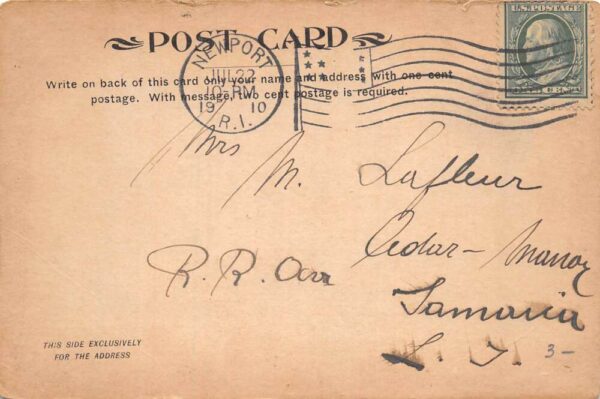 POST CARD
U.S. POSTAGE
NEWPORT
JUL 22
10-PM
19 10
R.I.
Write on back of this card only your name and address with one cent
postage. With message, two cent postage is required.
Mrs
M. Lafleur
Cedar-Manor
R. R. Ave
Jamaica
L. I. 3-
THIS SIDE EXCLUSIVELY
FOR THE ADDRESS